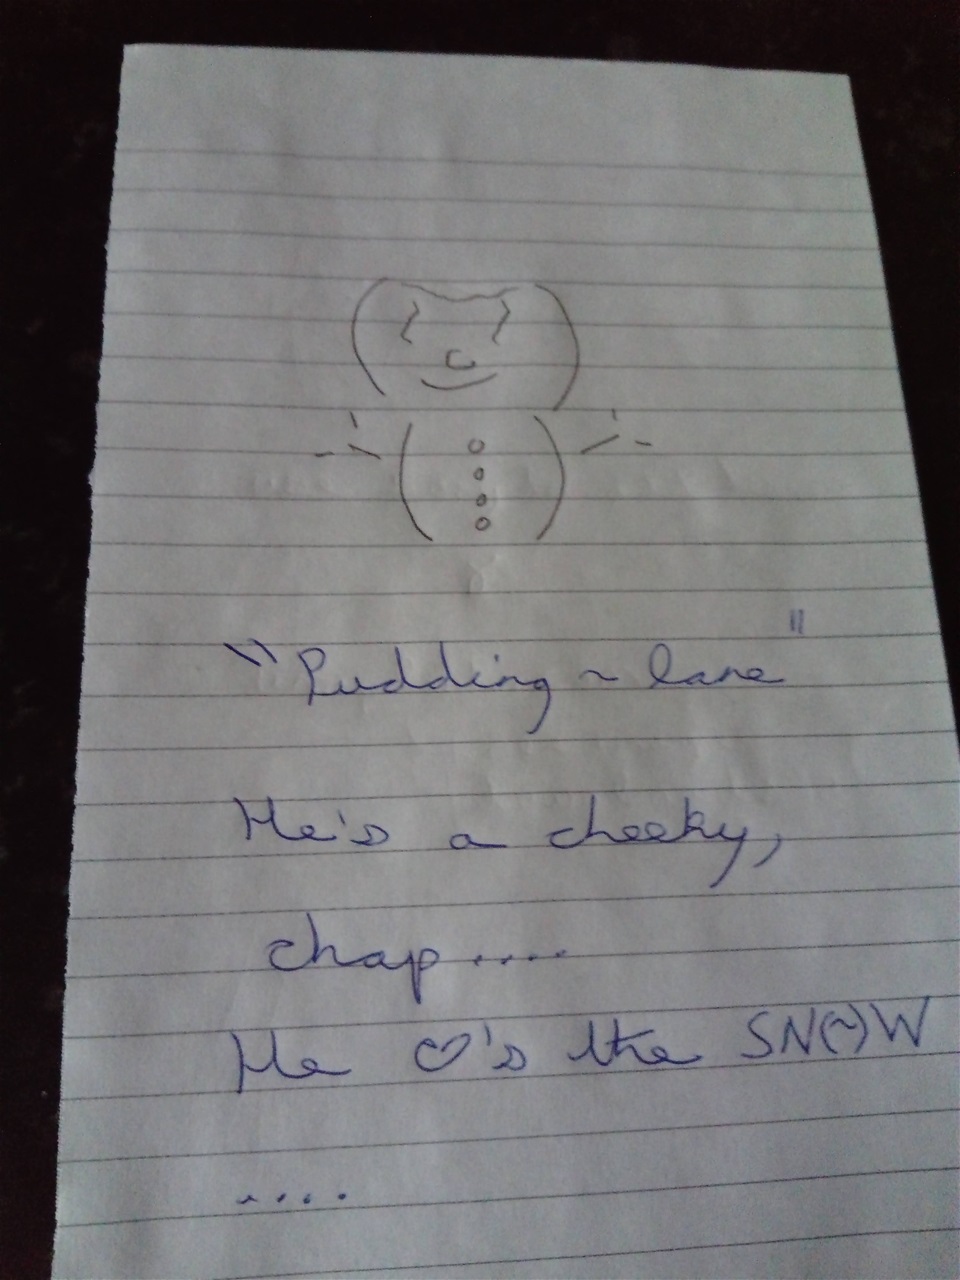 "Pudding ~ lane"
He's a cheeky,
chap ....
He ♡'s the SN(~)W
....